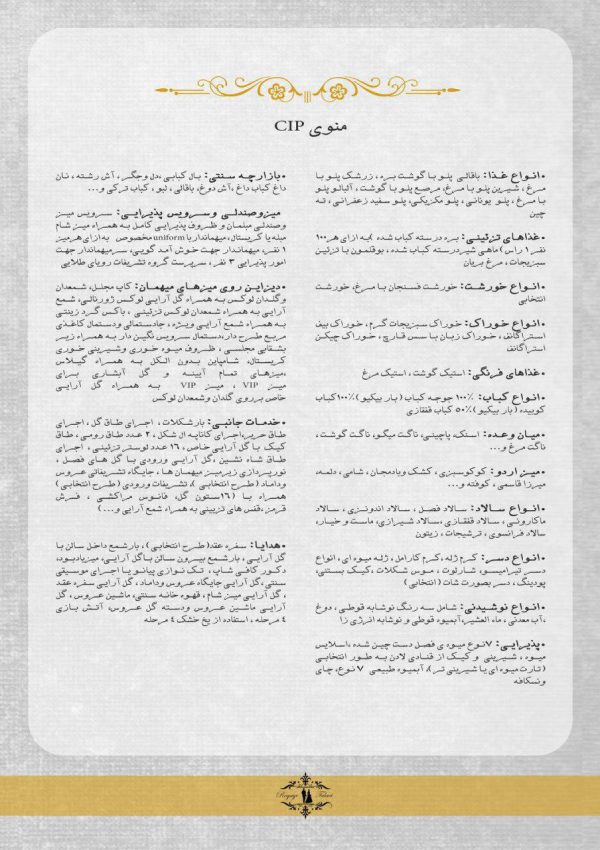 منوی CIP
•انواع غذا: باقالی پلو با گوشت بره ، زرشک پلو با
مرغ ، شیرین پلو با مرغ، مرصع پلو با گوشت ، آلبالو پلو
با مرغ ، پلو یونانی ، پلو مکزیکی، پلو سفید زعفرانی ، ته
چین
•غذاهای تزئینی: بره درسته کباب شده (به ازای هر ۱۰۰
نفر ۱ راس )ماهی شیر درسته کباب شده ، بوقلمون با تزئین
سبزیجات ، مرغ بریان
•انواع خورشت: خورشت فسنجان با مرغ، خورشت
انتخابی
•انواع خوراک: خوراک سبزیجات گرم، خوراک بیف
استراگانف ، خوراک زبان با سس قارچ ، خوراک چیکن
استراگانف
•غذاهای فرنگی: استیک گوشت ، استیک مرغ
•انواع کباب: ۱۰۰٪ جوجه کباب (بار بیکیو )۱۰۰٪کباب
کوبیده (بار بیکیو )۵۰٪ کباب قفقازی
•میان وعده: اسنک، پاچینی، ناگت میگو، ناگت گوشت،
ناگت مرغ و...
•میز اردو: کوکوسبزی ، کشک وبادمجان ، شامی ، دلمه،
میرزا قاسمی ، کوفته و...
•انواع سالاد: سالاد فصل ، سالاد اندونزی ، سالاد
ماکارونی ، سالاد قفقازی ،سالاد شیرازی، ماست و خیار،
سالاد فرانسوی ، ترشیجات ، زیتون
•انواع دسر: کرم ژله ،کرم کارامل ، ژله میوه ای ، انواع
دسر تیرامیسو، شارلوت ، موس شکلات ،کیک بستنی،
پودینگ ، دسر بصورت شات ( انتخابی )
•انواع نوشیدنی: شامل سه رنگ نوشابه قوطی ، دوغ
،آب معدنی ، ماء الشعیر،آبمیوه قوطی و نوشابه انرژی زا
•پذیرایی: ۷نوع میوه ی فصل دست چین شده ،اسلایس
میوه ، شیرینی و کیک از قنادی لادن به طور انتخابی
( تارت میوه ای یا شیرینی تر)، آبمیوه طبیعی ۷ نوع، چای
ونسکافه
•بازارچه سنتی: بال کبابی ،دل وجگر ، آش رشته ، نان
داغ کباب داغ ،آش دوغ، باقالی ، لبو ، کباب ترکی و...
میزوصندلی وسرویس پذیرایی: سرویس میز
وصندلی مبلمان و ظروف پذیرایی کامل به همراه میز شام
مبله یا کریستال، میهماندار با uniform مخصوص به ازای هر میز
۱ نفر، میهماندار جهت خوش آمد گویی، سرمیهماندار جهت
امور پذیرایی ۳ نفر ، سرپرست گروه تشریفات رویای طلایی
•دیزاین روی میزهای میهمان: کاپ مجلل، شمعدان
وگلدان لوکس به همراه گل آرایی لوکس ژورنالی، شمع
آرایی به همراه شمعدان لوکس تزئینی ، باکس گرد زینتی
به همراه شمع آرایی ویژه ، جادستمالی ودستمال کاغذی
مربع طرح دار،دستمال سرویس نگین دار به همراه زیر
بشقابی مجلسی ، ظروف میوه خوری وشیرینی خوری
کریستال، شامپاین بدون الکل به همراه گیلاس
،میزهای تمام آیینه و گل آبشاری برای
میز VIP ، میز VIP به همراه گل آرایی
خاص برروی گلدان وشمعدان لوکس
•خدمات جانبی: بارشکلات ، اجرای طاق گل ، اجرای
طاق حریر،اجرای کاناپه ال شکل ، ۲ عدد طاق رومی ، طاق
کیک با گل آرایی خاص، ۱۶ عدد لوستر تزئینی ، اجرای
طاق شاه نشین ،گل آرایی ورودی با گل های فصل ،
نورپردازی زیرمیز میهمان ها ، جایگاه تشریفاتی عروس
وداماد ( طرح انتخابی )، تشریفات ورودی ( طرح انتخابی )
همراه با (۱۶ستون گل، فانوس مراکشی ، فرش
قرمز،قفس های تزیینی به همراه شمع آرایی و...)
•هدایا: سفره عقد(طرح انتخابی ) ، بارشمع داخل سالن با
گل آرایی ، بارشمع بیرون سالن باگل آرایی، میزیادبود،
دکور کافی شاپ ، تک نوازی پیانو یا اجرای موسیقی
سنتی،گل آرایی جایگاه عروس وداماد، گل آرایی سفره عقد
، گل آرایی میز شام ، قهوه خانه سنتی، ماشین عروس ، گل
آرایی ماشین عروس ودسته گل عروس، آتش بازی
۴ مرحله ، استفاده از یخ خشک ۴ مرحله
Royaye Talaei